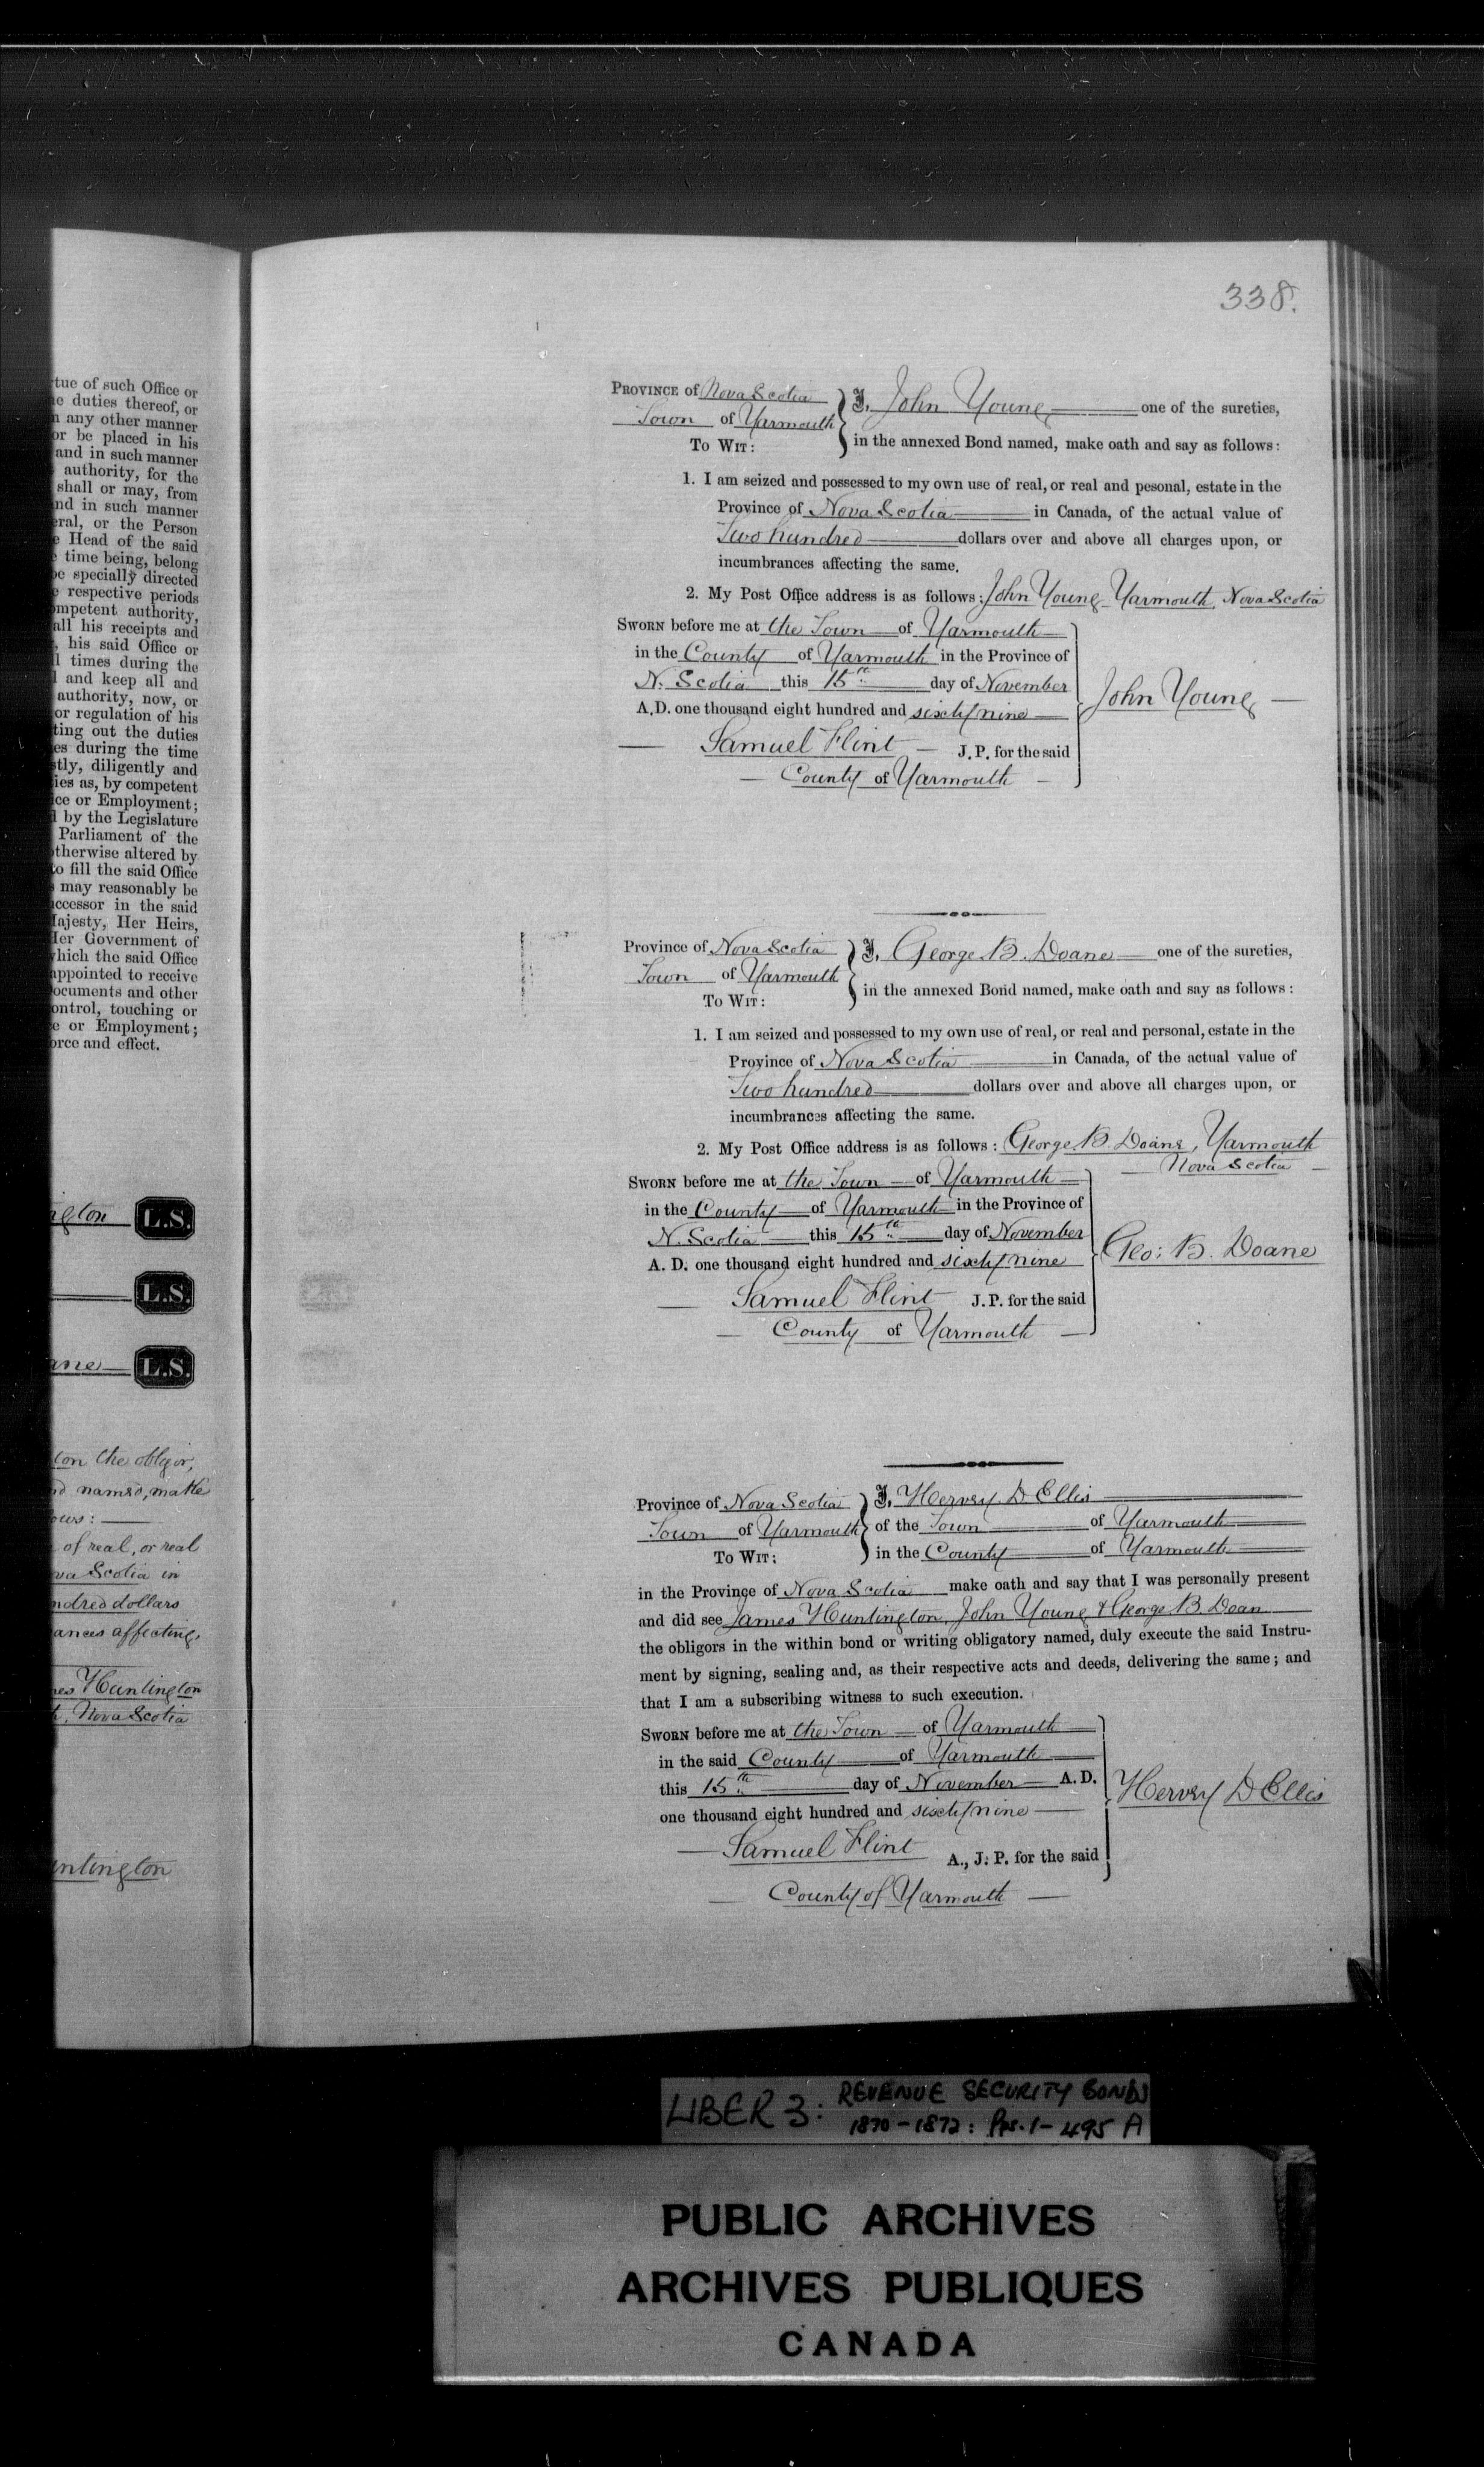 tue of such Office or
e duties thereof, or
n any other manner
or be placed in his
and in such manner
authority, for the
shall or may, from
nd in such manner
eral, or the Person
e Head of the said
e time being, belong
be specially directed
e respective periods
ompetent authority,
all his receipts and
, his said Office or
l times during the
l and keep all and
authority, now, or
or regulation of his
ting out the duties
es during the time
stly, diligently and
ies as, by competent
ice or Employment;
l by the Legislature
Parliament of the
otherwise altered by
to fill the said Office
s may reasonably be
uccessor in the said
Majesty, Her Heirs,
Her Government of
which the said Office
appointed to receive
ocuments and other
ontrol, touching or
e or Employment;
orce and effect.
ngton L.S.
L.S.
ane L.S.
ton the obligor,
nd named, make
ows:
of real, or real
va Scotia in
ndred dollars
ances affecting
mes Huntington
h, Nova Scotia
untington
338.
PROVINCE of Nova Scotia } I, John Young one of the sureties,
Town of Yarmouth
TO WIT: in the annexed Bond named, make oath and say as follows:
1. I am seized and possessed to my own use of real, or real and pesonal, estate in the
Province of Nova Scotia in Canada, of the actual value of
Two hundred dollars over and above all charges upon, or
incumbrances affecting the same.
2. My Post Office address is as follows: John Young Yarmouth, Nova Scotia
SWORN before me at the Town of Yarmouth
in the County of Yarmouth in the Province of
N. Scotia this 15th day of November
A.D. one thousand eight hundred and sixty nine John Young
Samuel Flint J.P. for the said
County of Yarmouth
Province of Nova Scotia } I, George B. Doane one of the sureties,
Town of Yarmouth
TO WIT: in the annexed Bond named, make oath and say as follows:
1. I am seized and possessed to my own use of real, or real and personal, estate in the
Province of Nova Scotia in Canada, of the actual value of
Two hundred dollars over and above all charges upon, or
incumbrances affecting the same.
2. My Post Office address is as follows: George B Doane, Yarmouth
Nova Scotia
SWORN before me at the Town of Yarmouth
in the County of Yarmouth in the Province of
N. Scotia this 15th day of November
A. D. one thousand eight hundred and sixty nine Geo: B. Doane
Samuel Flint J.P. for the said
County of Yarmouth
Province of Nova Scotia } I, Hervey D Ellis
Town of Yarmouth of the Town of Yarmouth
TO WIT: in the County of Yarmouth
in the Province of Nova Scotia make oath and say that I was personally present
and did see James Huntington, John Young & George B. Doan
the obligors in the within bond or writing obligatory named, duly execute the said Instru-
ment by signing, sealing and, as their respective acts and deeds, delivering the same; and
that I am a subscribing witness to such execution.
SWORN before me at the Town of Yarmouth
in the said County of Yarmouth
this 15th day of November A. D.
one thousand eight hundred and sixty nine Hervey D Ellis
Samuel Flint A., J. P. for the said
County of Yarmouth
LIBER 3: REVENUE SECURITY BONDS
1870-1872: Pps. 1-495 A
PUBLIC ARCHIVES
ARCHIVES PUBLIQUES
CANADA